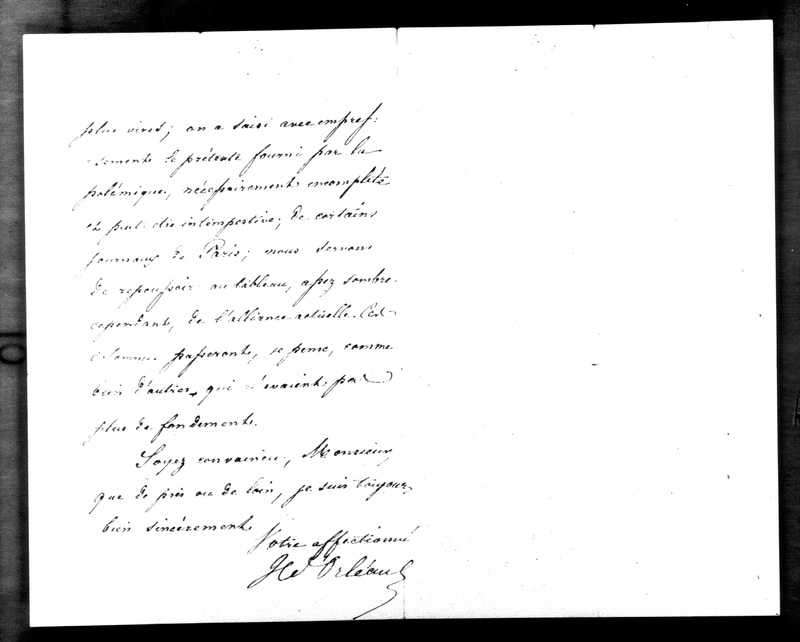 plus vives; on a saisi avec empres-
sement le prétexte fourni par la
polémique, nécessairement incomplète
et peut-être intempestive, de certains
journaux de Paris; nous servons
de repoussoir au tableau, assez sombre
cependant, de l'alliance actuelle. Ces
passeront, je pense, comme
bien d'autres, qui n'avaient pas
plus de fondement.
Soyez convaincu, Monsieur,
que de près ou de loin, je suis toujours
bien sincèrement
Votre affectionné
H. d'Orléans